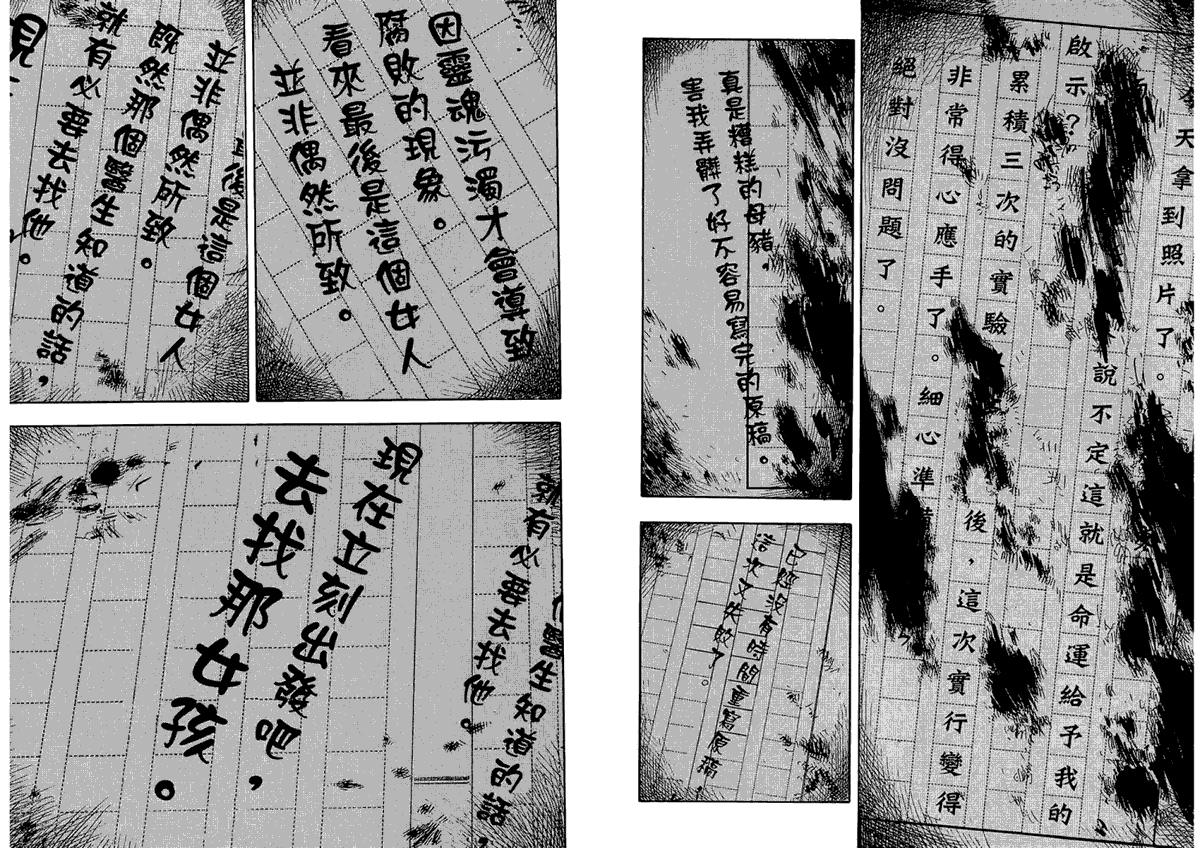 天拿到照片了。
說不定這就是命運給予我的
啟示？
累積三次的實驗後，這次實行變得
非常得心應手了。細心準備
絕對沒問題了。
真是糟糕的母豬，
害我弄髒了好不容易寫完的原稿。
已經沒有時間重寫原稿
這次又失敗了。
因靈魂污濁才會導致
腐敗的現象。
看來最後是這個女人
並非偶然所致。
後是這個女人
並非偶然所致。
既然那個醫生知道的話，
就有必要去找他。
現
醫生知道的話，
就有必要去找他。
現在立刻出發吧，
去找那女孩。